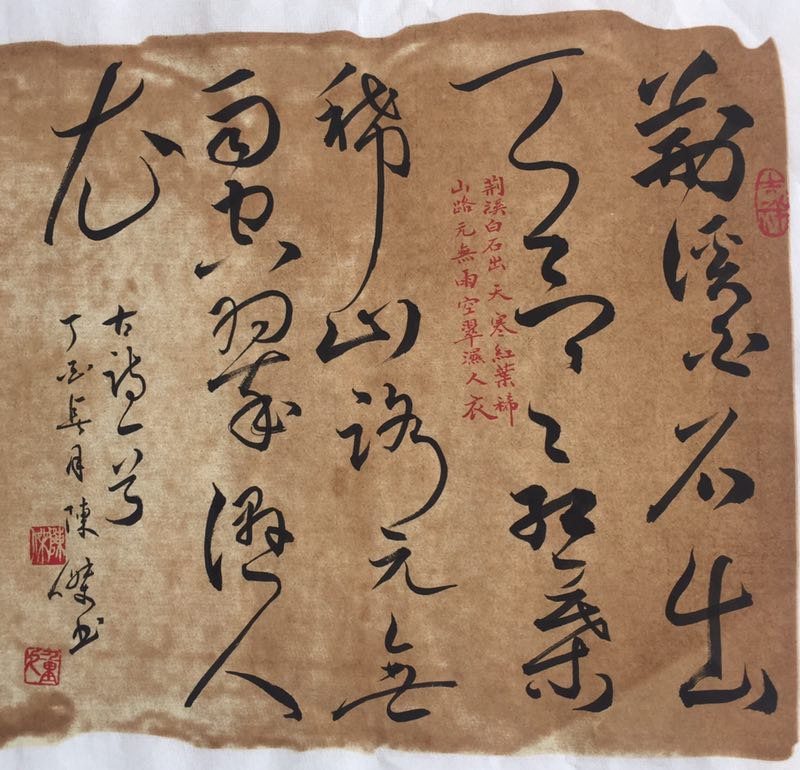 荆溪白石出
天寒紅葉
稀山路元無
雨空翠濕人
衣
荆溪白石出天寒紅葉稀
山路元無雨空翠濕人衣
古詩一首
丁酉月陳傑书
陳傑